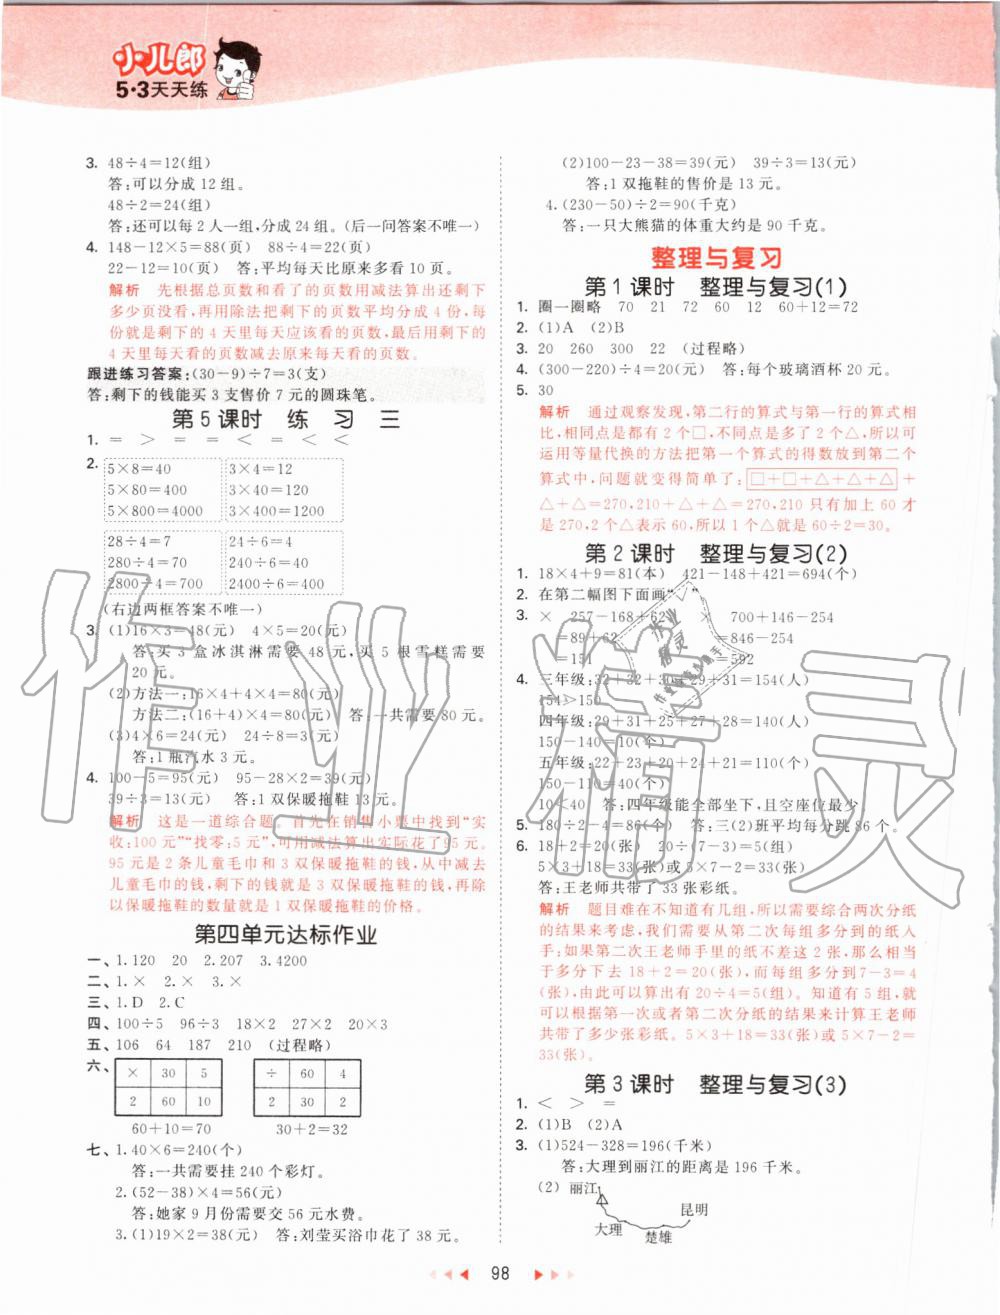 小儿郎
5·3天天练
3. 48÷4=12(组)
答:可以分成 12 组。
48÷2=24(组)
答:还可以每 2 人一组,分成 24 组。(后一问答案不唯一)
4. 148-12×5=88(页) 88÷4=22(页)
22-12=10(页) 答:平均每天比原来多看 10 页。
解析 先根据总页数和看了的页数用减法算出还剩下
多少页没看,再用除法把剩下的页数平均分成 4 份,每
份就是剩下的 4 天里每天应该看的页数,最后用剩下的
4 天里每天看的页数减去原来每天看的页数。
跟进练习答案:(30-9)÷7=3(支)
答:剩下的钱能买 3 支售价 7 元的圆珠笔。
第 5 课时 练 习 三
1. = > = = < = < <
2. 5×8=40 3×4=12
5×80=400 3×40=120
5×800=4000 3×400=1200
28÷4=7 24÷6=4
280÷4=70 240÷6=40
2800÷4=700 2400÷6=400
(右边两框答案不唯一)
3. (1)16×3=48(元) 4×5=20(元)
答:买 3 盒冰淇淋需要 48 元,买 5 根雪糕需要
20 元。
(2)方法一:16×4+4×4=80(元)
方法二:(16+4)×4=80(元) 答:一共需要 80 元。
(3)4×6=24(元) 24÷8=3(元)
答:1 瓶汽水 3 元。
4. 100-5=95(元) 95-28×2=39(元)
39÷3=13(元) 答:1 双保暖拖鞋 13 元。
解析 这是一道综合题。首先在销售小票中找到“实
收:100 元”“找零:5 元”,可用减法算出实际花了 95 元。
95 元是 2 条儿童毛巾和 3 双保暖拖鞋的钱,从中减去
儿童毛巾的钱,剩下的钱就是 3 双保暖拖鞋的钱,再除
以保暖拖鞋的数量就是 1 双保暖拖鞋的价格。
第四单元达标作业
一、1.120 20 2.207 3.4200
二、1.× 2.× 3.×
三、1.D 2.C
四、100÷5 96÷3 18×2 27×2 20×3
五、106 64 187 210 (过程略)
六、 × 30 5 ÷ 60 4
2 60 10 2 30 2
60+10=70 30+2=32
七、1.40×6=240(个)
答:一共需要挂 240 个彩灯。
2.(52-38)×4=56(元)
答:她家 9 月份需要交 56 元水费。
3.(1)19×2=38(元) 答:刘莹买浴巾花了 38 元。
(2)100-23-38=39(元) 39÷3=13(元)
答:1 双拖鞋的售价是 13 元。
4.(230-50)÷2=90(千克)
答:一只大熊猫的体重大约是 90 千克。
整理与复习
第 1 课时 整理与复习(1)
1. 圈一圈略 70 21 72 60 12 60+12=72
2. (1)A (2)B
3. 20 260 300 22 (过程略)
4. (300-220)÷4=20(元) 答:每个玻璃酒杯 20 元。
5. 30
解析 通过观察发现,第二行的算式与第一行的算式相
比,相同点是都有 2 个□,不同点是多了 2 个△,所以可
运用等量代换的方法把第一个算式的得数放到第二个
算式中,问题就变得简单了:□+□+△+△+△+
△+△=270,210+△+△=270,210 只有加上 60 才
是 270,2 个△表示 60,所以 1 个△就是 60÷2=30。
第 2 课时 整理与复习(2)
1. 18×4+9=81(本) 421-148+421=694(个)
2. 在第二幅图下面画“√”
3. × 257-168+62 × 700+146-254
=89+62 =846-254
=151 =592
4. 三年级:32+32+30+29+31=154(人)
154>150
四年级:29+31+25+27+28=140(人)
150-140=10(个)
五年级:22+23+20+24+21=110(个)
150-110=40(个)
10<40 答:四年级能全部坐下,且空座位最少。
5. 180÷2-4=86(个) 答:三(2)班平均每分跳 86 个。
6. 18+2=20(张) 20÷(7-3)=5(组)
5×3+18=33(张)或 5×7-2=33(张)
答:王老师共带了 33 张彩纸。
解析 题目难在不知道有几组,所以需要综合两次分纸
的结果来考虑,我们需要从第二次每组多分到的纸入
手:如果第二次王老师手里的纸不差这 2 张,那么相当
于多分下去 18+2=20(张),而每组多分到 7-3=4
(张),由此可以算出有 20÷4=5(组)。知道有 5 组,就
可以根据第一次或者第二次分纸的结果来计算王老师
共带了多少张彩纸。5×3+18=33(张)或 5×7-2=
33(张)。
第 3 课时 整理与复习(3)
1. < > =
2. (1)B (2)A
3. (1)524-328=196(千米)
答:大理到丽江的距离是 196 千米。
(2) 丽江
昆明
大理
楚雄
98
作业精灵